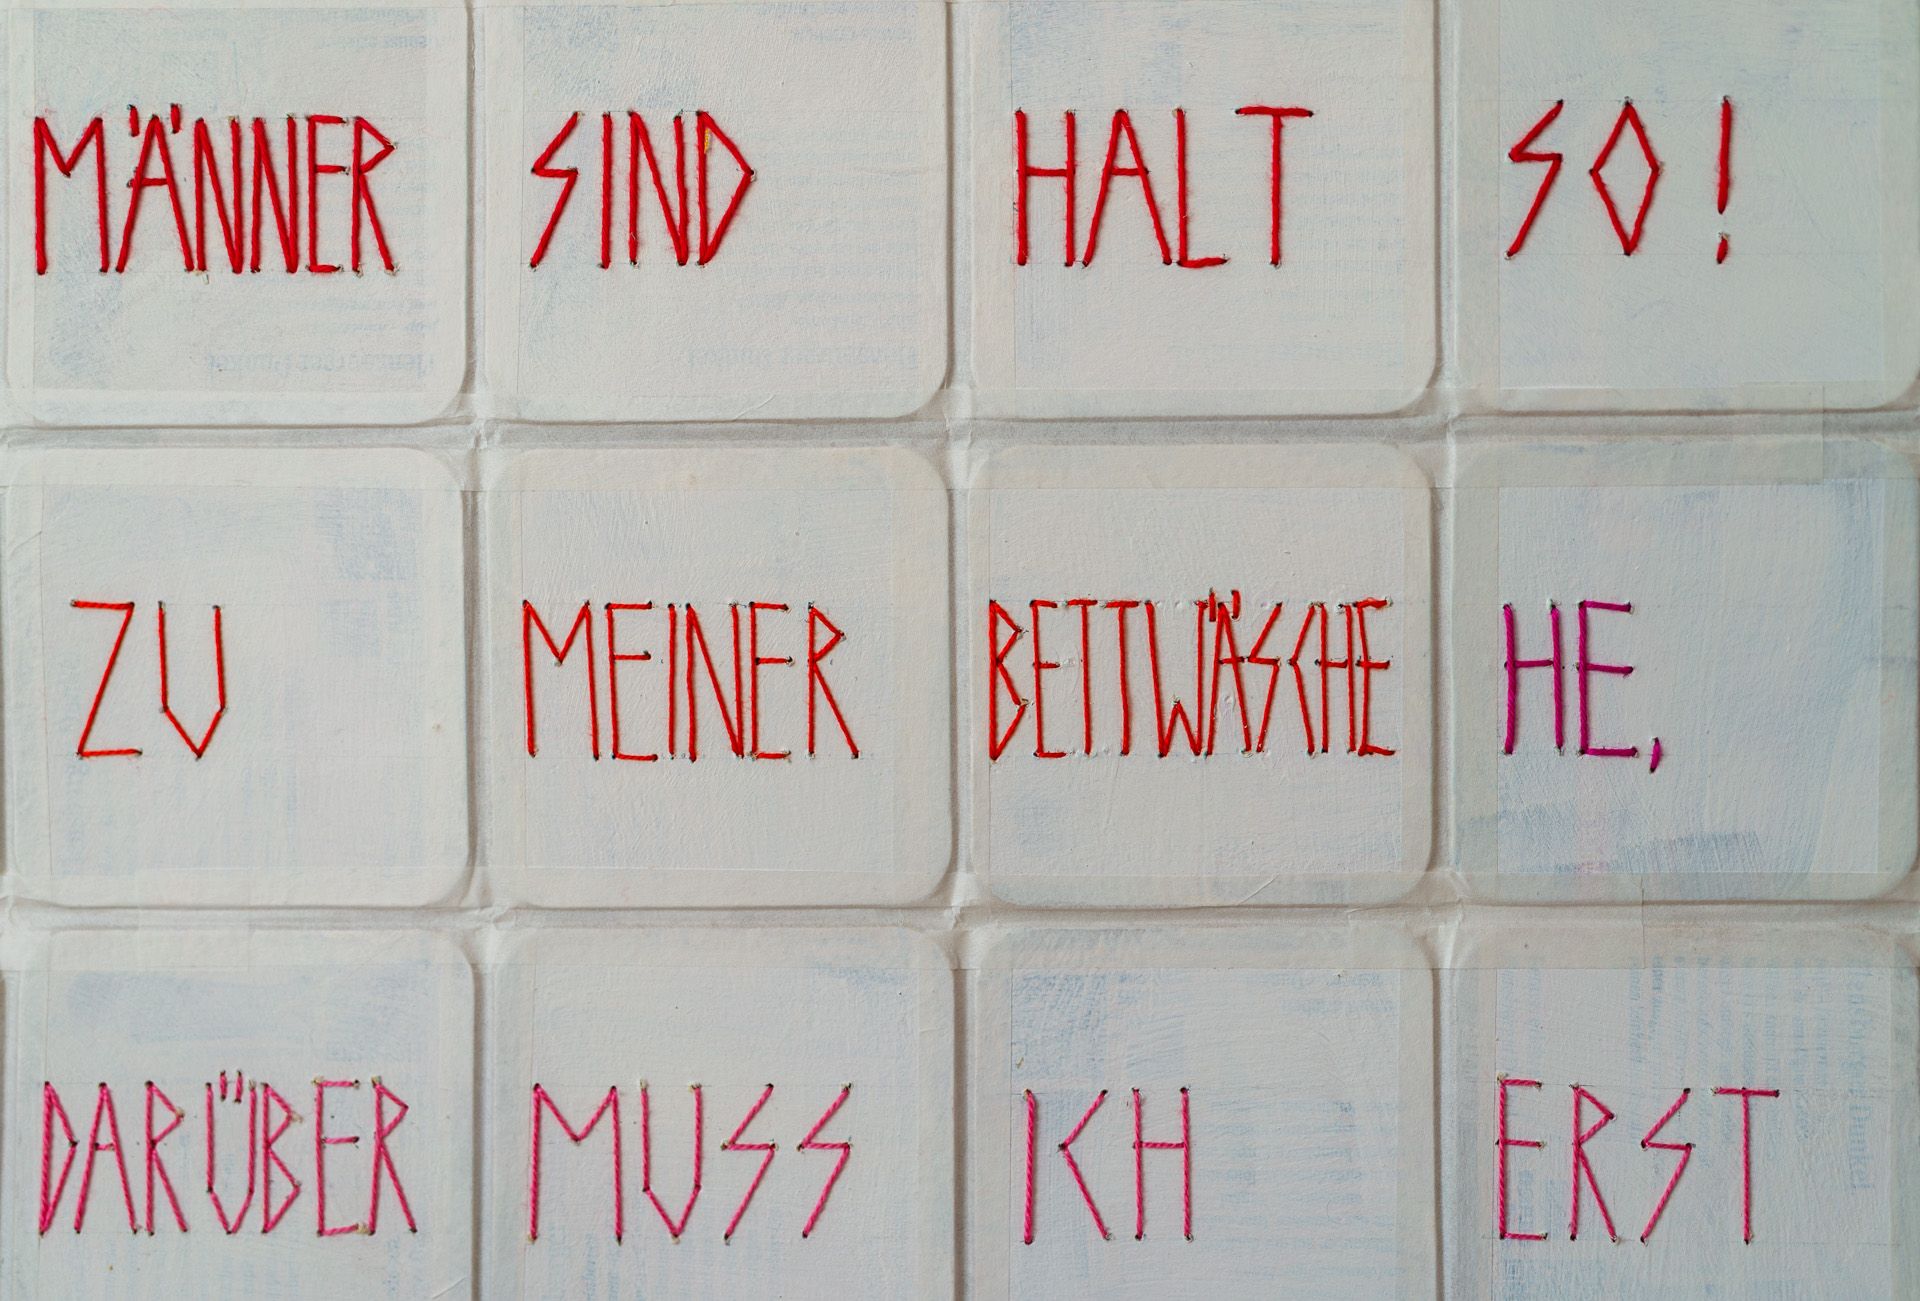 MÄNNER SIND HALT SO!
ZU MEINER BETTWÄSCHE HE,
DARÜBER MUSS ICH ERST